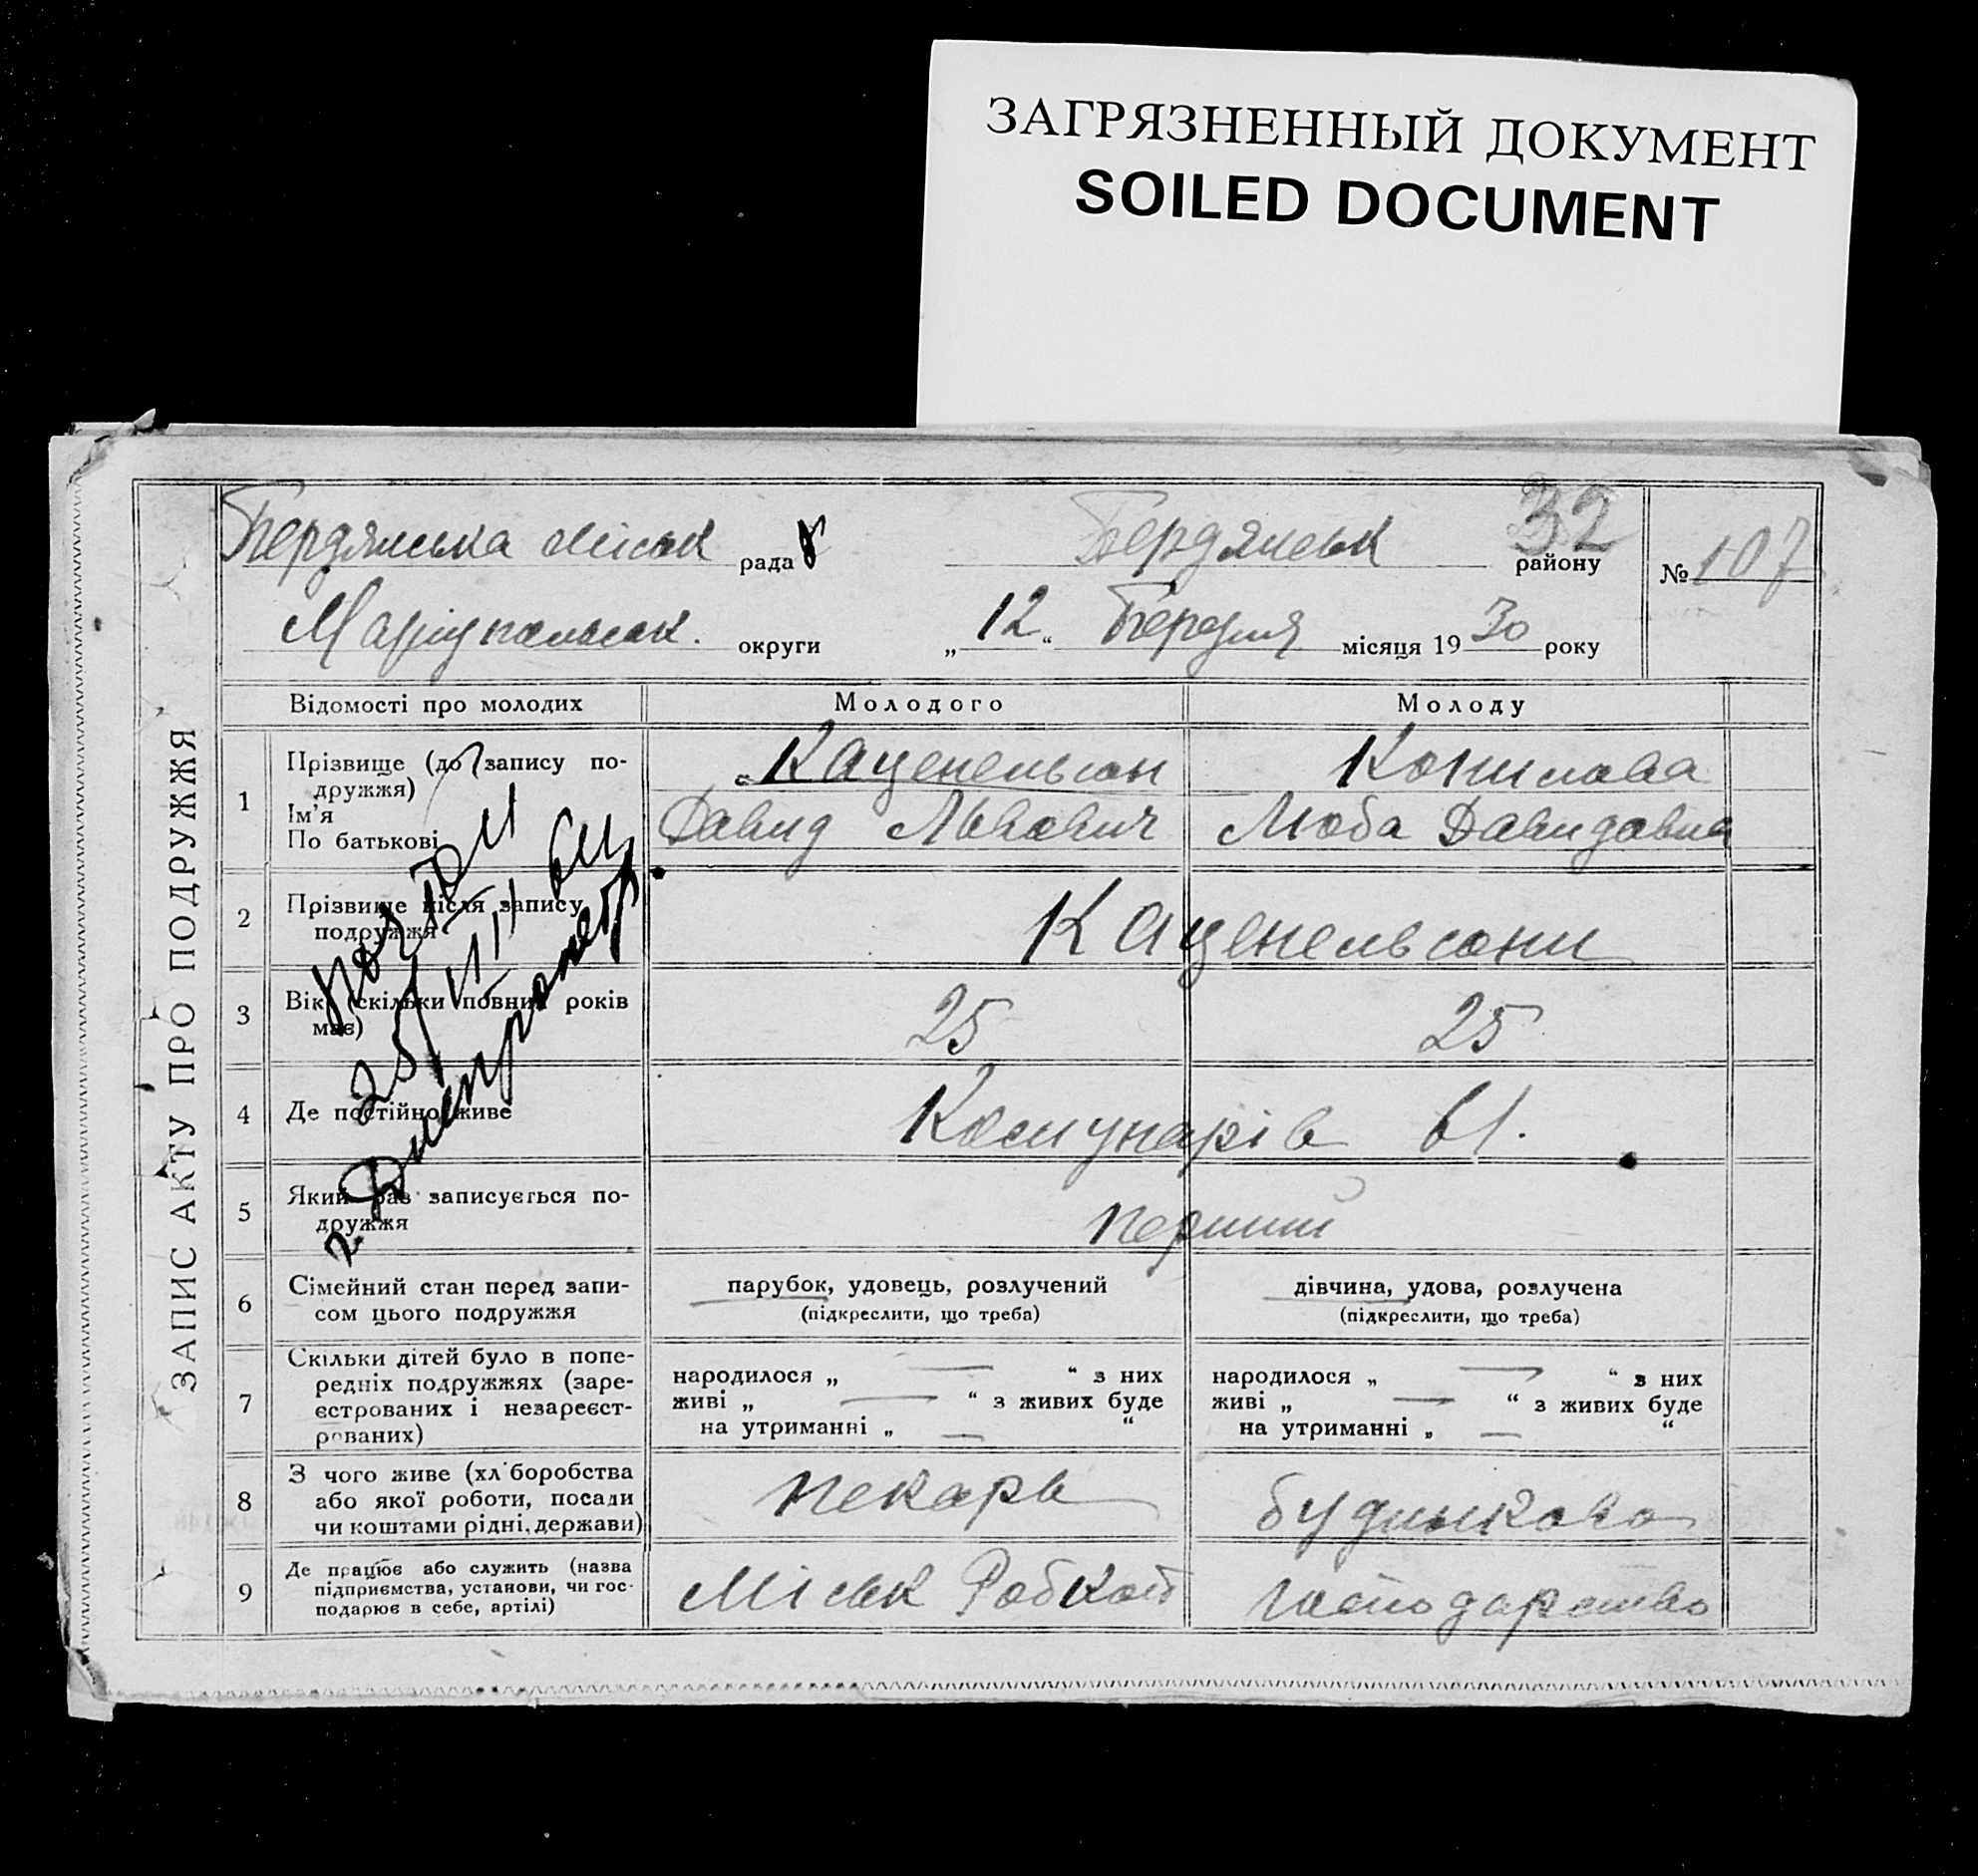 ЗАГРЯЗНЕННЫЙ ДОКУМЕНТ
SOILED DOCUMENT
ЗАПИС АКТУ ПРО ПОДРУЖЖЯ
Бердянська міськ рада Бердянськ району 32 № 107
Маріупольськ. округи „12“ Березня місяця 1930 року
Відомості про молодих Молодого Молоду
1 Прізвище (до запису по-
дружжя)
Ім’я
По батькові
Каценельсон
Давид Львович
Люба Давидовна
2 Прізвище після запису
подружжя
Каценельсони
3 Вік (скільки повних років
має)
25 25
4 Де постійно живе
Комунарів 61.
5 Який раз записується по-
дружжя
перший
6 Сімейний стан перед запи-
сом цього подружжя
парубок, удовець, розлучений
(підкреслити, що треба)
дівчина, удова, розлучена
(підкреслити, що треба)
7 Скільки дітей було в попе-
редніх подружжях (заре-
єстрованих і незареєст-
рованих)
народилося „ — “ з них
живі „ — “ з живих буде
на утриманні „ — “
народилося „ — “ з них
живі „ — “ з живих буде
на утриманні „ — “
8 З чого живе (хліборобства
або якої роботи, посади
чи коштами рідні, держави)
пекарь
будинково
9 Де працює або служить (назва
підприємства, установи, чи гос-
подарює в себе, артілі)
Міськ Робкоп
господарство